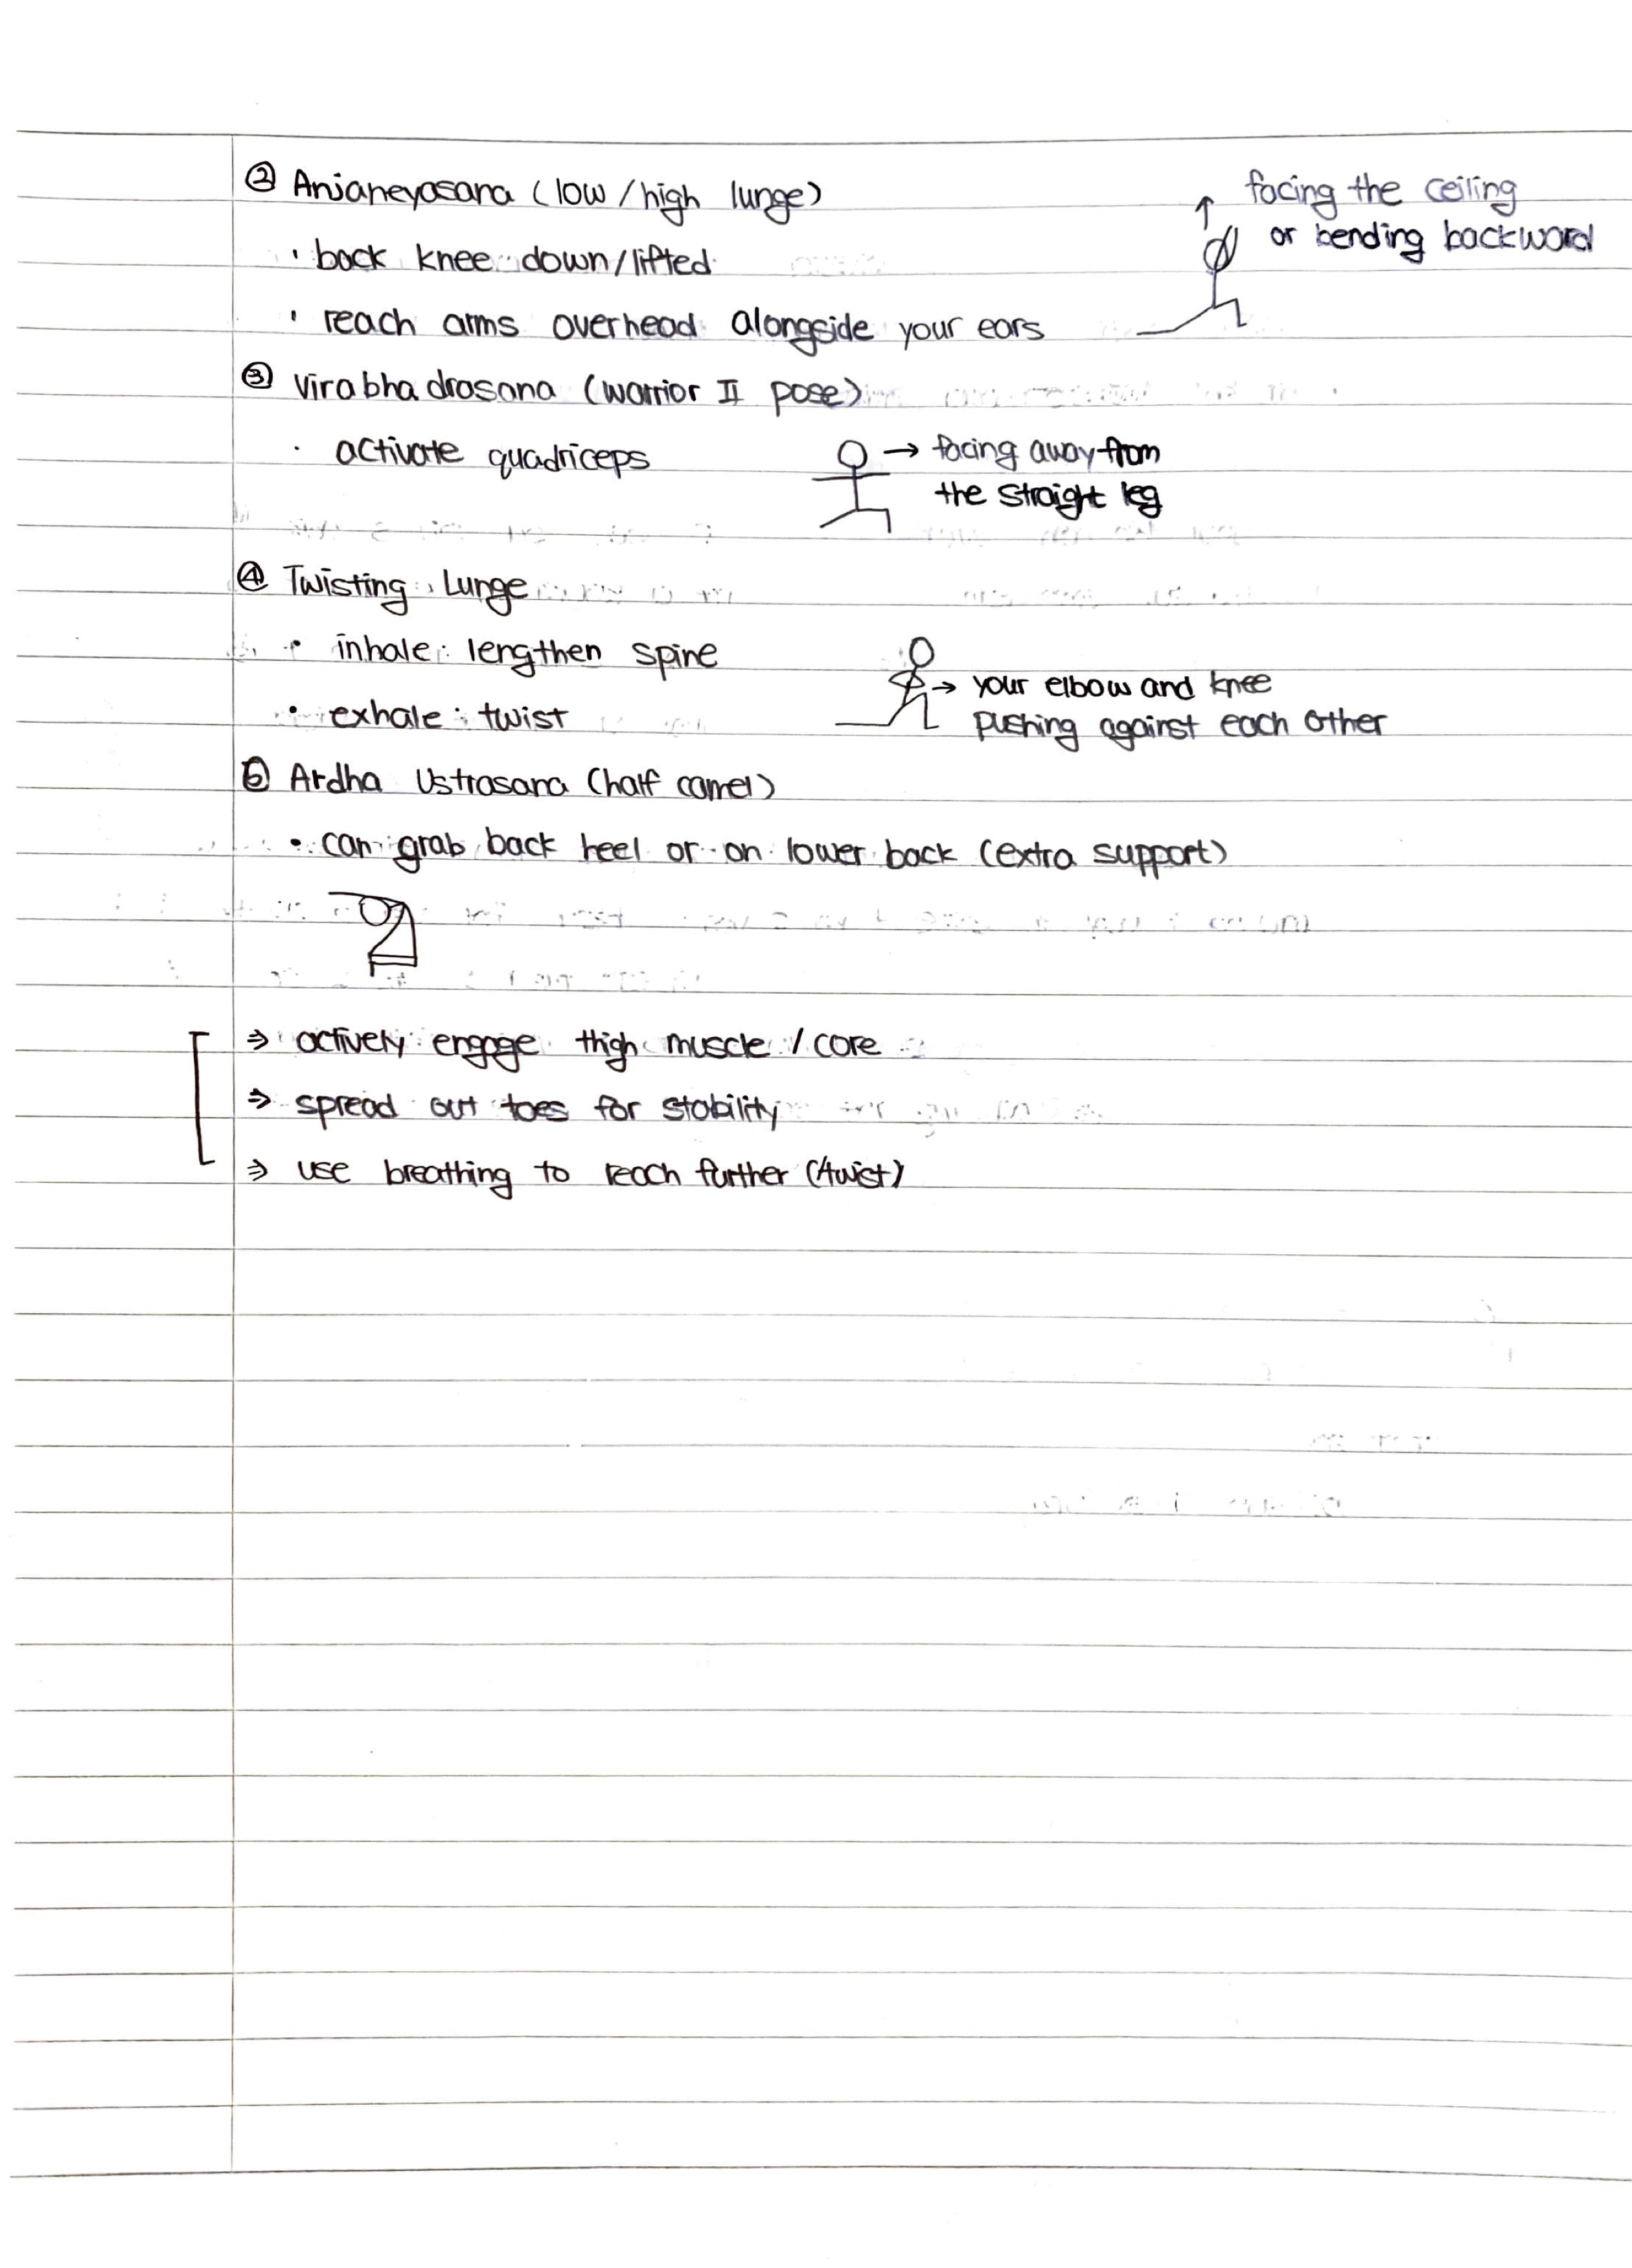 ② Anjaneyasana (low/high lunge)
facing the ceiling
or bending backward
· back knee down/lifted
· reach arms overhead alongside your ears
③ Virabhadrasana (warrior II pose)
· activate quadriceps
→ facing away from
the straight leg
④ Twisting Lunge
• inhale: lengthen spine
• exhale: twist
→ your elbow and knee
pushing against each other
⑤ Ardha Ustrasana (half camel)
• can grab back heel or on lower back (extra support)
⇒ actively engage thigh muscle / core
⇒ spread out toes for stability
⇒ use breathing to reach further (twist)